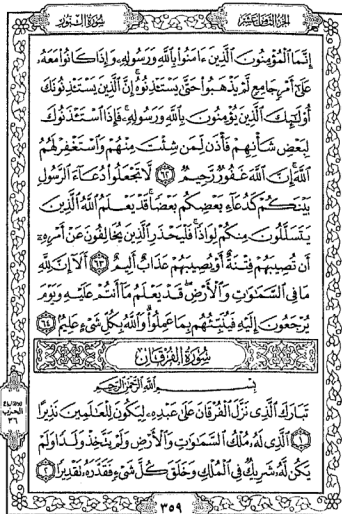 الجزء الثامن عشر
سورة النور
إِنَّمَا الْمُؤْمِنُونَ الَّذِينَ ءَامَنُوا بِاللَّهِ وَرَسُولِهِ وَإِذَا كَانُوا مَعَهُ
عَلَىٰ أَمْرٍ جَامِعٍ لَمْ يَذْهَبُوا حَتَّىٰ يَسْتَـْٔذِنُوهُ إِنَّ الَّذِينَ يَسْتَـْٔذِنُونَكَ
أُولَٰئِكَ الَّذِينَ يُؤْمِنُونَ بِاللَّهِ وَرَسُولِهِ فَإِذَا اسْتَـْٔذَنُوكَ
لِبَعْضِ شَأْنِهِمْ فَأْذَن لِّمَن شِئْتَ مِنْهُمْ وَاسْتَغْفِرْ لَهُمُ
اللَّهَ إِنَّ اللَّهَ غَفُورٌ رَّحِيمٌ ٦٢ لَّا تَجْعَلُوا دُعَاءَ الرَّسُولِ
بَيْنَكُمْ كَدُعَاءِ بَعْضِكُم بَعْضًا قَدْ يَعْلَمُ اللَّهُ الَّذِينَ
يَتَسَلَّلُونَ مِنكُمْ لِوَاذًا فَلْيَحْذَرِ الَّذِينَ يُخَالِفُونَ عَنْ أَمْرِهِ
أَن تُصِيبَهُمْ فِتْنَةٌ أَوْ يُصِيبَهُمْ عَذَابٌ أَلِيمٌ ٦٣ أَلَا إِنَّ لِلَّهِ
مَا فِي السَّمَٰوَٰتِ وَالْأَرْضِ قَدْ يَعْلَمُ مَا أَنتُمْ عَلَيْهِ وَيَوْمَ
يُرْجَعُونَ إِلَيْهِ فَيُنَبِّئُهُم بِمَا عَمِلُوا وَاللَّهُ بِكُلِّ شَيْءٍ عَلِيمٌ ٦٤
سورة الفرقان
بِسْمِ اللَّهِ الرَّحْمَٰنِ الرَّحِيمِ
تَبَارَكَ الَّذِي نَزَّلَ الْفُرْقَانَ عَلَىٰ عَبْدِهِ لِيَكُونَ لِلْعَٰلَمِينَ نَذِيرًا
١ الَّذِي لَهُ مُلْكُ السَّمَٰوَٰتِ وَالْأَرْضِ وَلَمْ يَتَّخِذْ وَلَدًا وَلَمْ
يَكُن لَّهُ شَرِيكٌ فِي الْمُلْكِ وَخَلَقَ كُلَّ شَيْءٍ فَقَدَّرَهُ تَقْدِيرًا ٢
الحزب
٣٦
٣٥٩